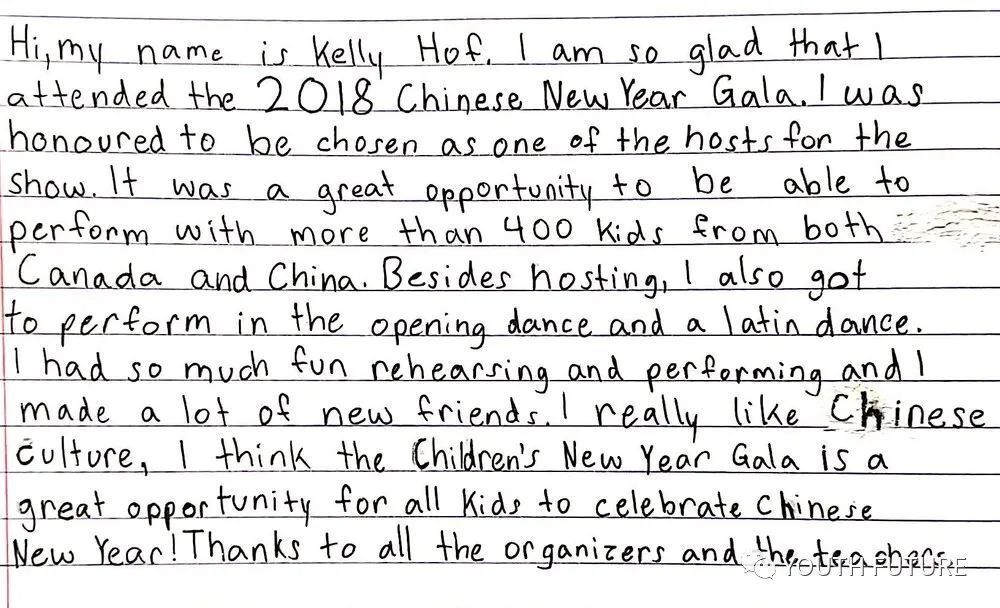 Hi, my name is Kelly Hof. I am so glad that I
attended the 2018 Chinese New Year Gala. I was
honoured to be chosen as one of the hosts for the
show. It was a great opportunity to be able to
perform with more than 400 kids from both
Canada and China. Besides hosting, I also got
to perform in the opening dance and a latin dance.
I had so much fun rehearsing and performing and I
made a lot of new friends. I really like Chinese
culture, I think the Children's New Year Gala is a
great opportunity for all kids to celebrate Chinese
New Year! Thanks to all the organizers and the teachers
YOUTH FUTURE